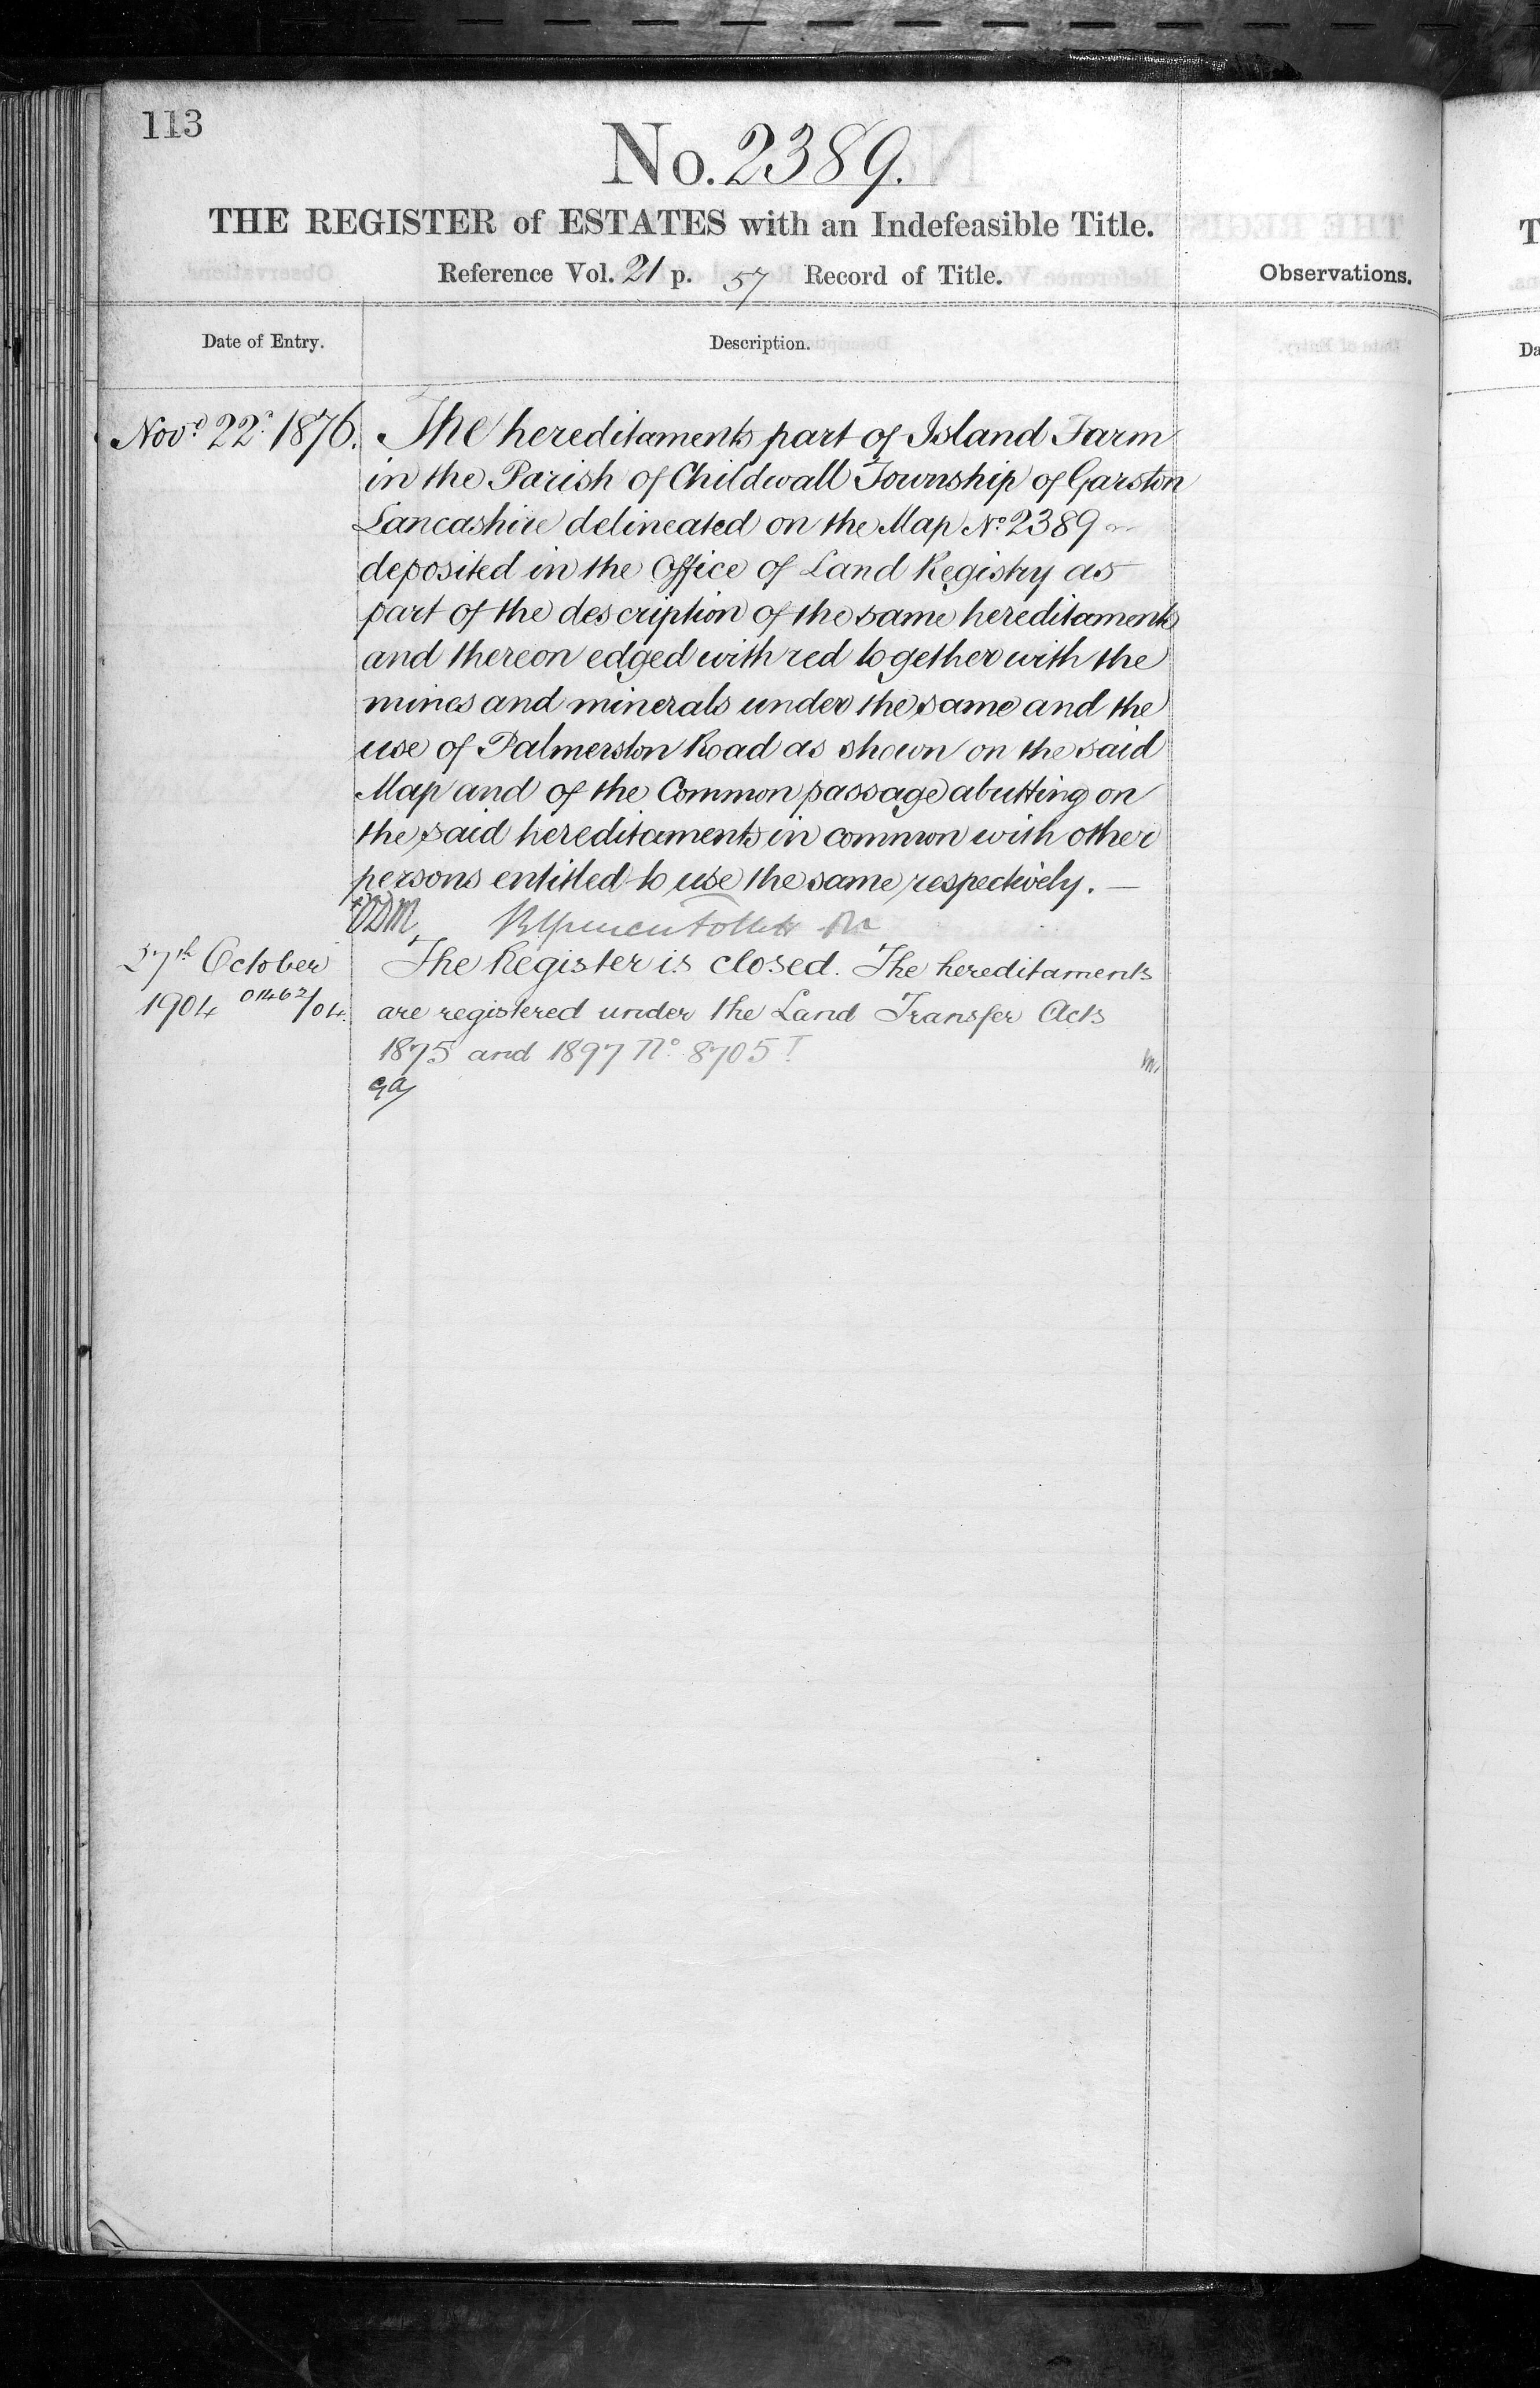 113
No. 2389.
THE REGISTER of ESTATES with an Indefeasible Title.
Reference Vol. 21 p. 57 Record of Title.
Observations.
Date of Entry.
Description.
Novr. 22d. 1876.
The hereditaments part of Island Farm
in the Parish of Childwall Township of Garston
Lancashire delineated on the Map No. 2389
deposited in the Office of Land Registry as
part of the description of the same hereditaments
and thereon edged with red together with the
mines and minerals under the same and the
use of Palmerston Road as shown on the said
Map and of the Common passage abutting on
the said hereditaments in common with other
persons entitled to use the same respectively. —
27th October
1904
The Register is closed. The hereditaments
are registered under the Land Transfer Acts
1875 and 1897 No. 8705
T
Da